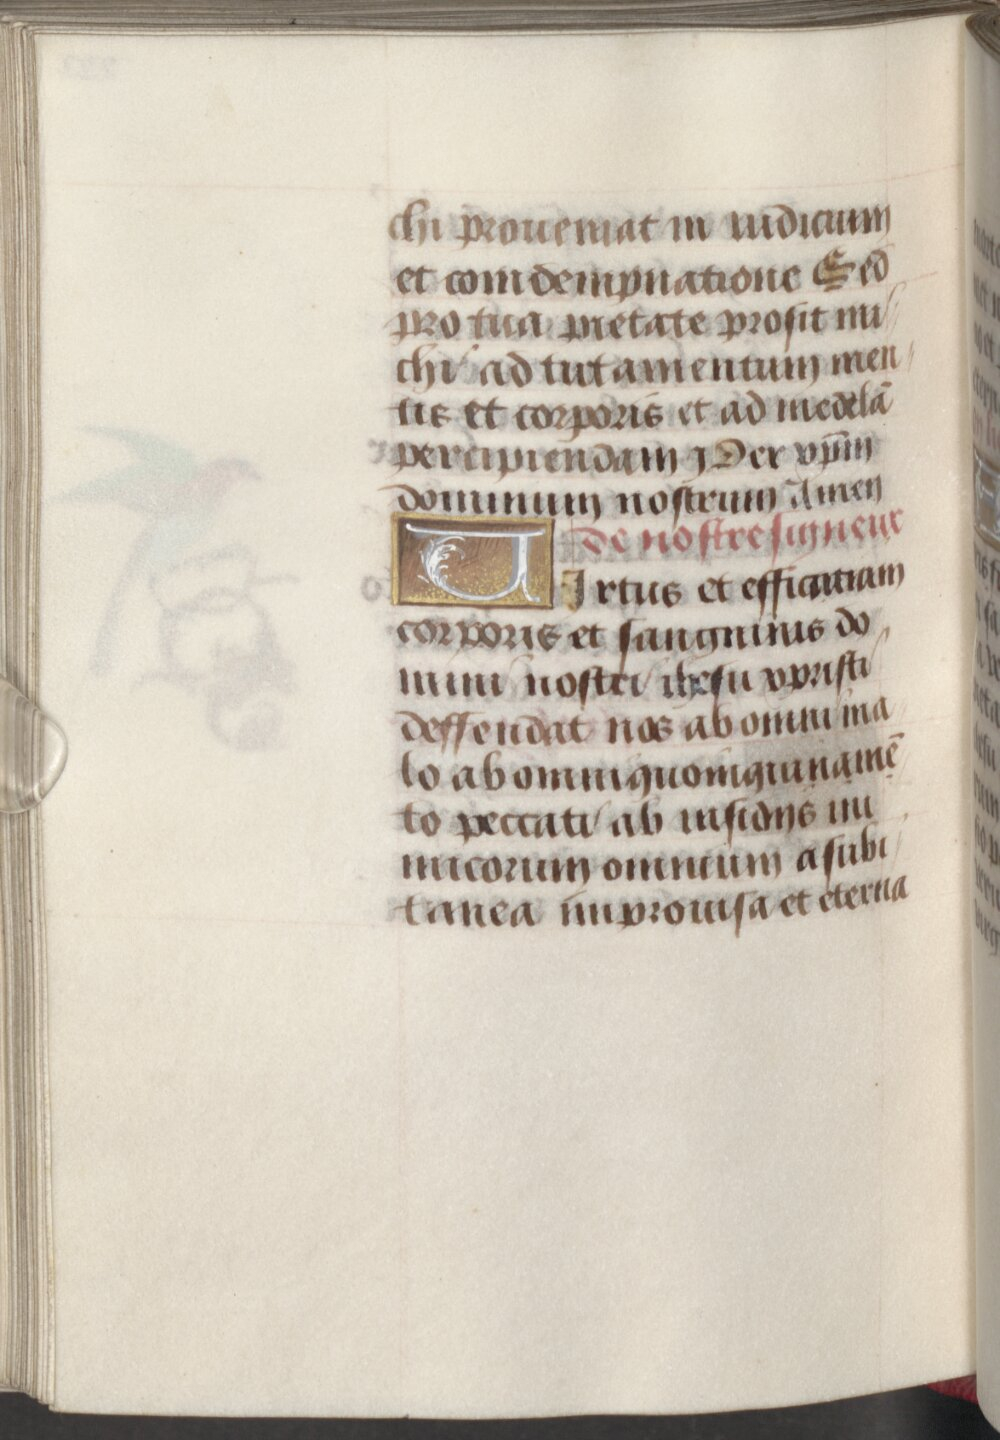 chi proueniat in iudicium
et comdempnatione Sed
pro tua pietate prosit mi
chi ad tutamentum men
tis et corporis et ad medelā
percipiendam Per xp̄m
dominum nostrum Amen
de nostre signeur
Virtus et efficatiam
corporis et sanguinis do
mini nostri ihesu xpristi
deffendat nos ab omni ma
lo ab omni quoinquinamē
to peccati ab insidijs ini
micorum omnium a subi
tanea improuisa et eterna